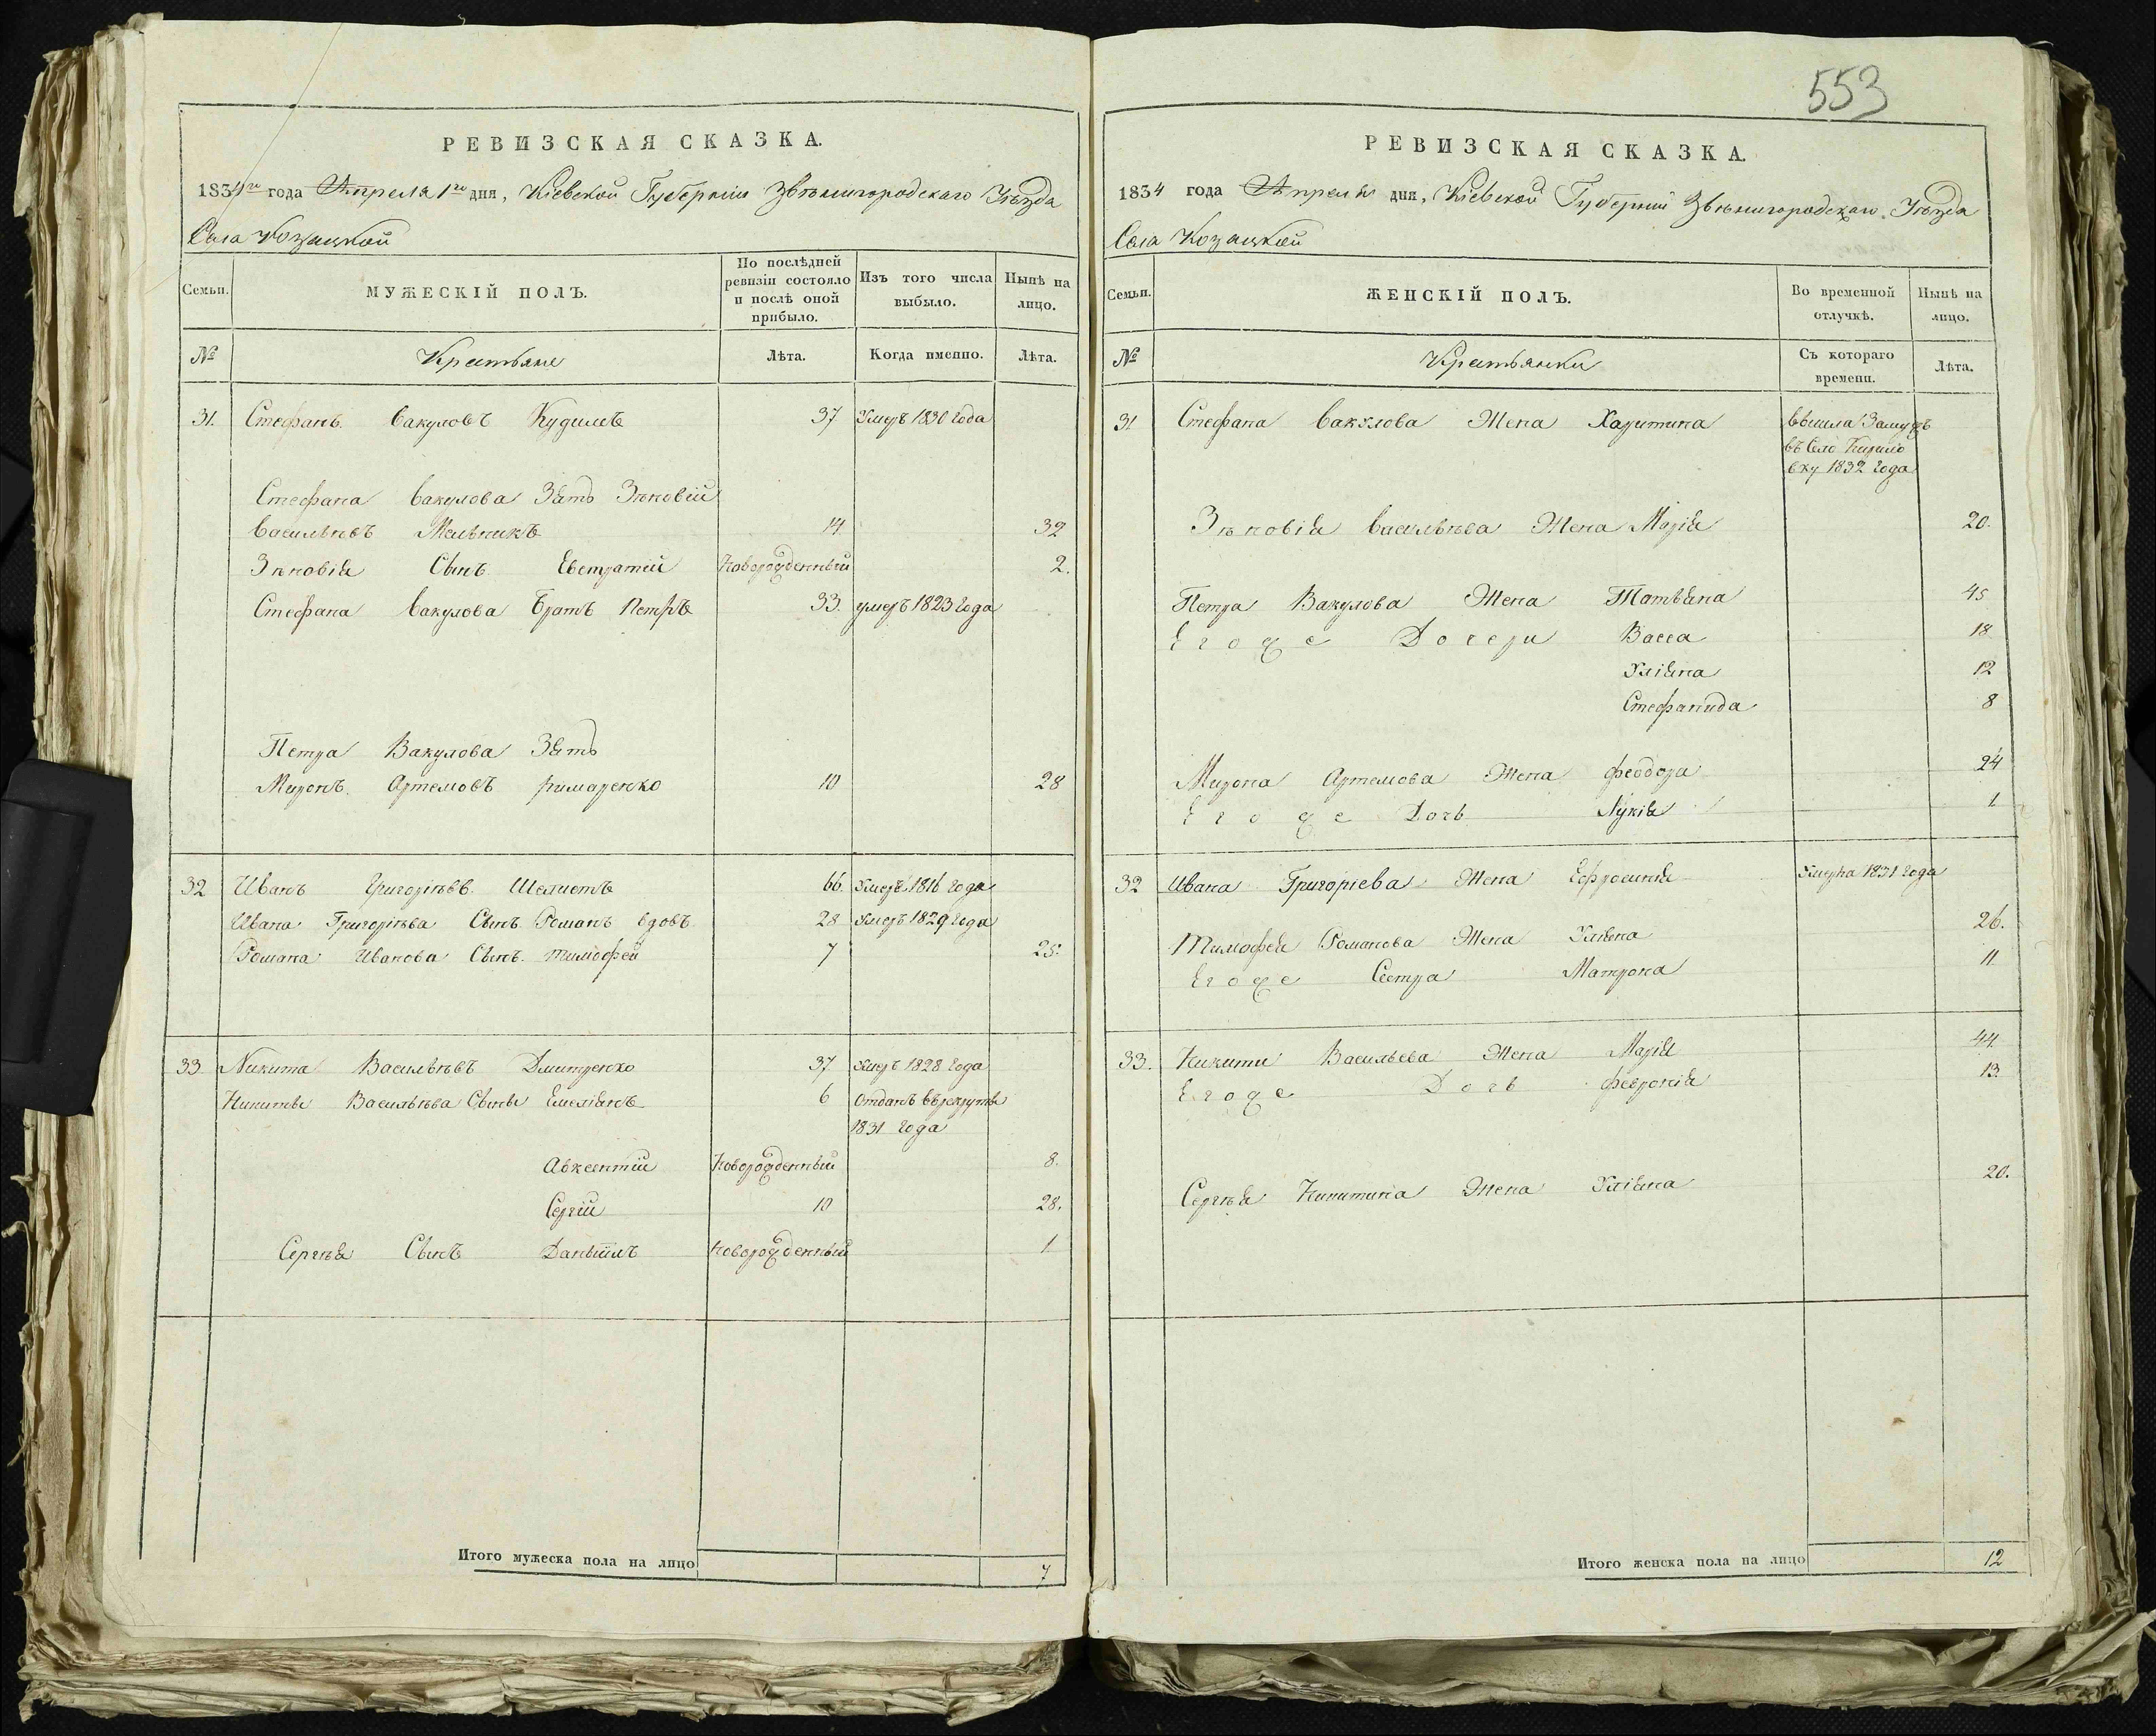 РЕВИЗСКАЯ СКАЗКА.
1834го года Апреля 1го дня, Кіевской Губерніи Звѣнигородскаго Уѣзда
Села Козацкой
Семьи.
МУЖЕСКІЙ ПОЛЪ.
По послѣдней ревизіи состояло и послѣ оной прибыло.
Изъ того числа выбыло.
Нынѣ на лицо.
№
Крестьяне
Лѣта.
Когда именно.
Лѣта.
31. Стефанъ Вакуловъ Кудимъ 37 Умеръ 1830 года
Стефана Вакулова Зять Зѣновій
Васильевъ Мельникъ 14 32
Зѣновія Сынъ Евстратій Новорожденный 2.
Стефана Вакулова Братъ Петръ 33. умеръ 1823 года
Петра Вакулова Зять
Миронъ Артемовъ Римаренко 10 28
32 Иванъ Григорьевъ Шелистъ 66. Умеръ 1816 года
Ивана Григорьева Сынъ Романъ вдовъ 28 Умеръ 1829 года
Романа Иванова Сынъ Тимофей 7 25.
33 Никита Васильевъ Дмитренко 37 Умеръ 1828 года
Никиты Васильева Сыны Емеліянъ 6 Отданъ въ рекруты
1831 года
Авксентій Новорожденный 8.
Сергій 10 28.
Сергѣя Сынъ Даніилъ Новорожденный 1
Итого мужеска пола на лицо 7
553
РЕВИЗСКАЯ СКАЗКА.
1834 года Апреля дня, Кіевской Губерніи Звѣнигородскаго Уѣзда
Села Козацкой
Семьи.
ЖЕНСКІЙ ПОЛЪ.
Во временной отлучкѣ.
Нынѣ на лицо.
№
Крестьянки
Съ котораго времени.
Лѣта.
31 Стефана Вакулова Жена Харитина вышла Замужъ
въ Село Кирило
вку 1832 года
Зѣновія Васильева Жена Марія 20.
Петра Вакулова Жена Татьяна 45
Егоже Дочери Васса 18
Уліяна 12
Стефанида 8
Мирона Артемова Жена Феодора 24
Егоже Дочь Лукія 1.
32 Ивана Григоріева Жена Ефросинія Умерла 1831 года
Тимофея Романова Жена Уліяна 26.
Егоже Сестра Матрона 11
33. Никиты Васильева Жена Марія 44
Егоже Дочь Февронія 13.
Сергѣя Никитина Жена Уліяна 20.
Итого женска пола на лицо 12